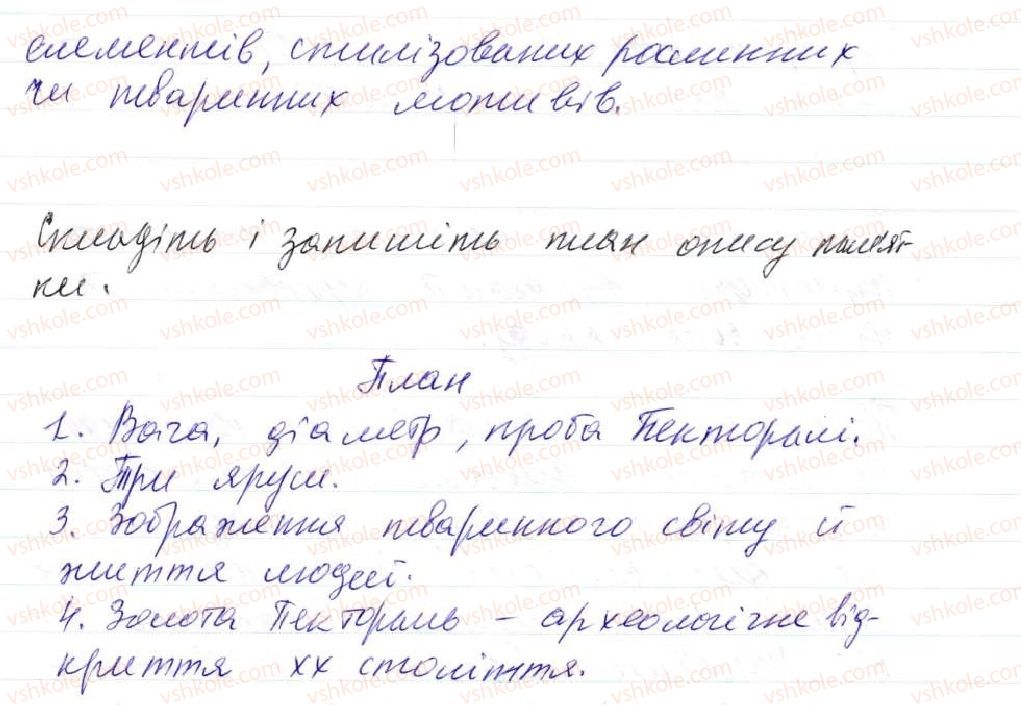 елементів, стилізованих рослинних
чи тваринних мотивів.
Складіть і запишіть план опису пам'ят-
ки.
План
1. Вага, діаметр, проба Пекторалі.
2. Три яруси.
3. Зображення тваринного світу й
життя людей.
4. Золота Пектораль – археологічне від-
криття ХХ століття.